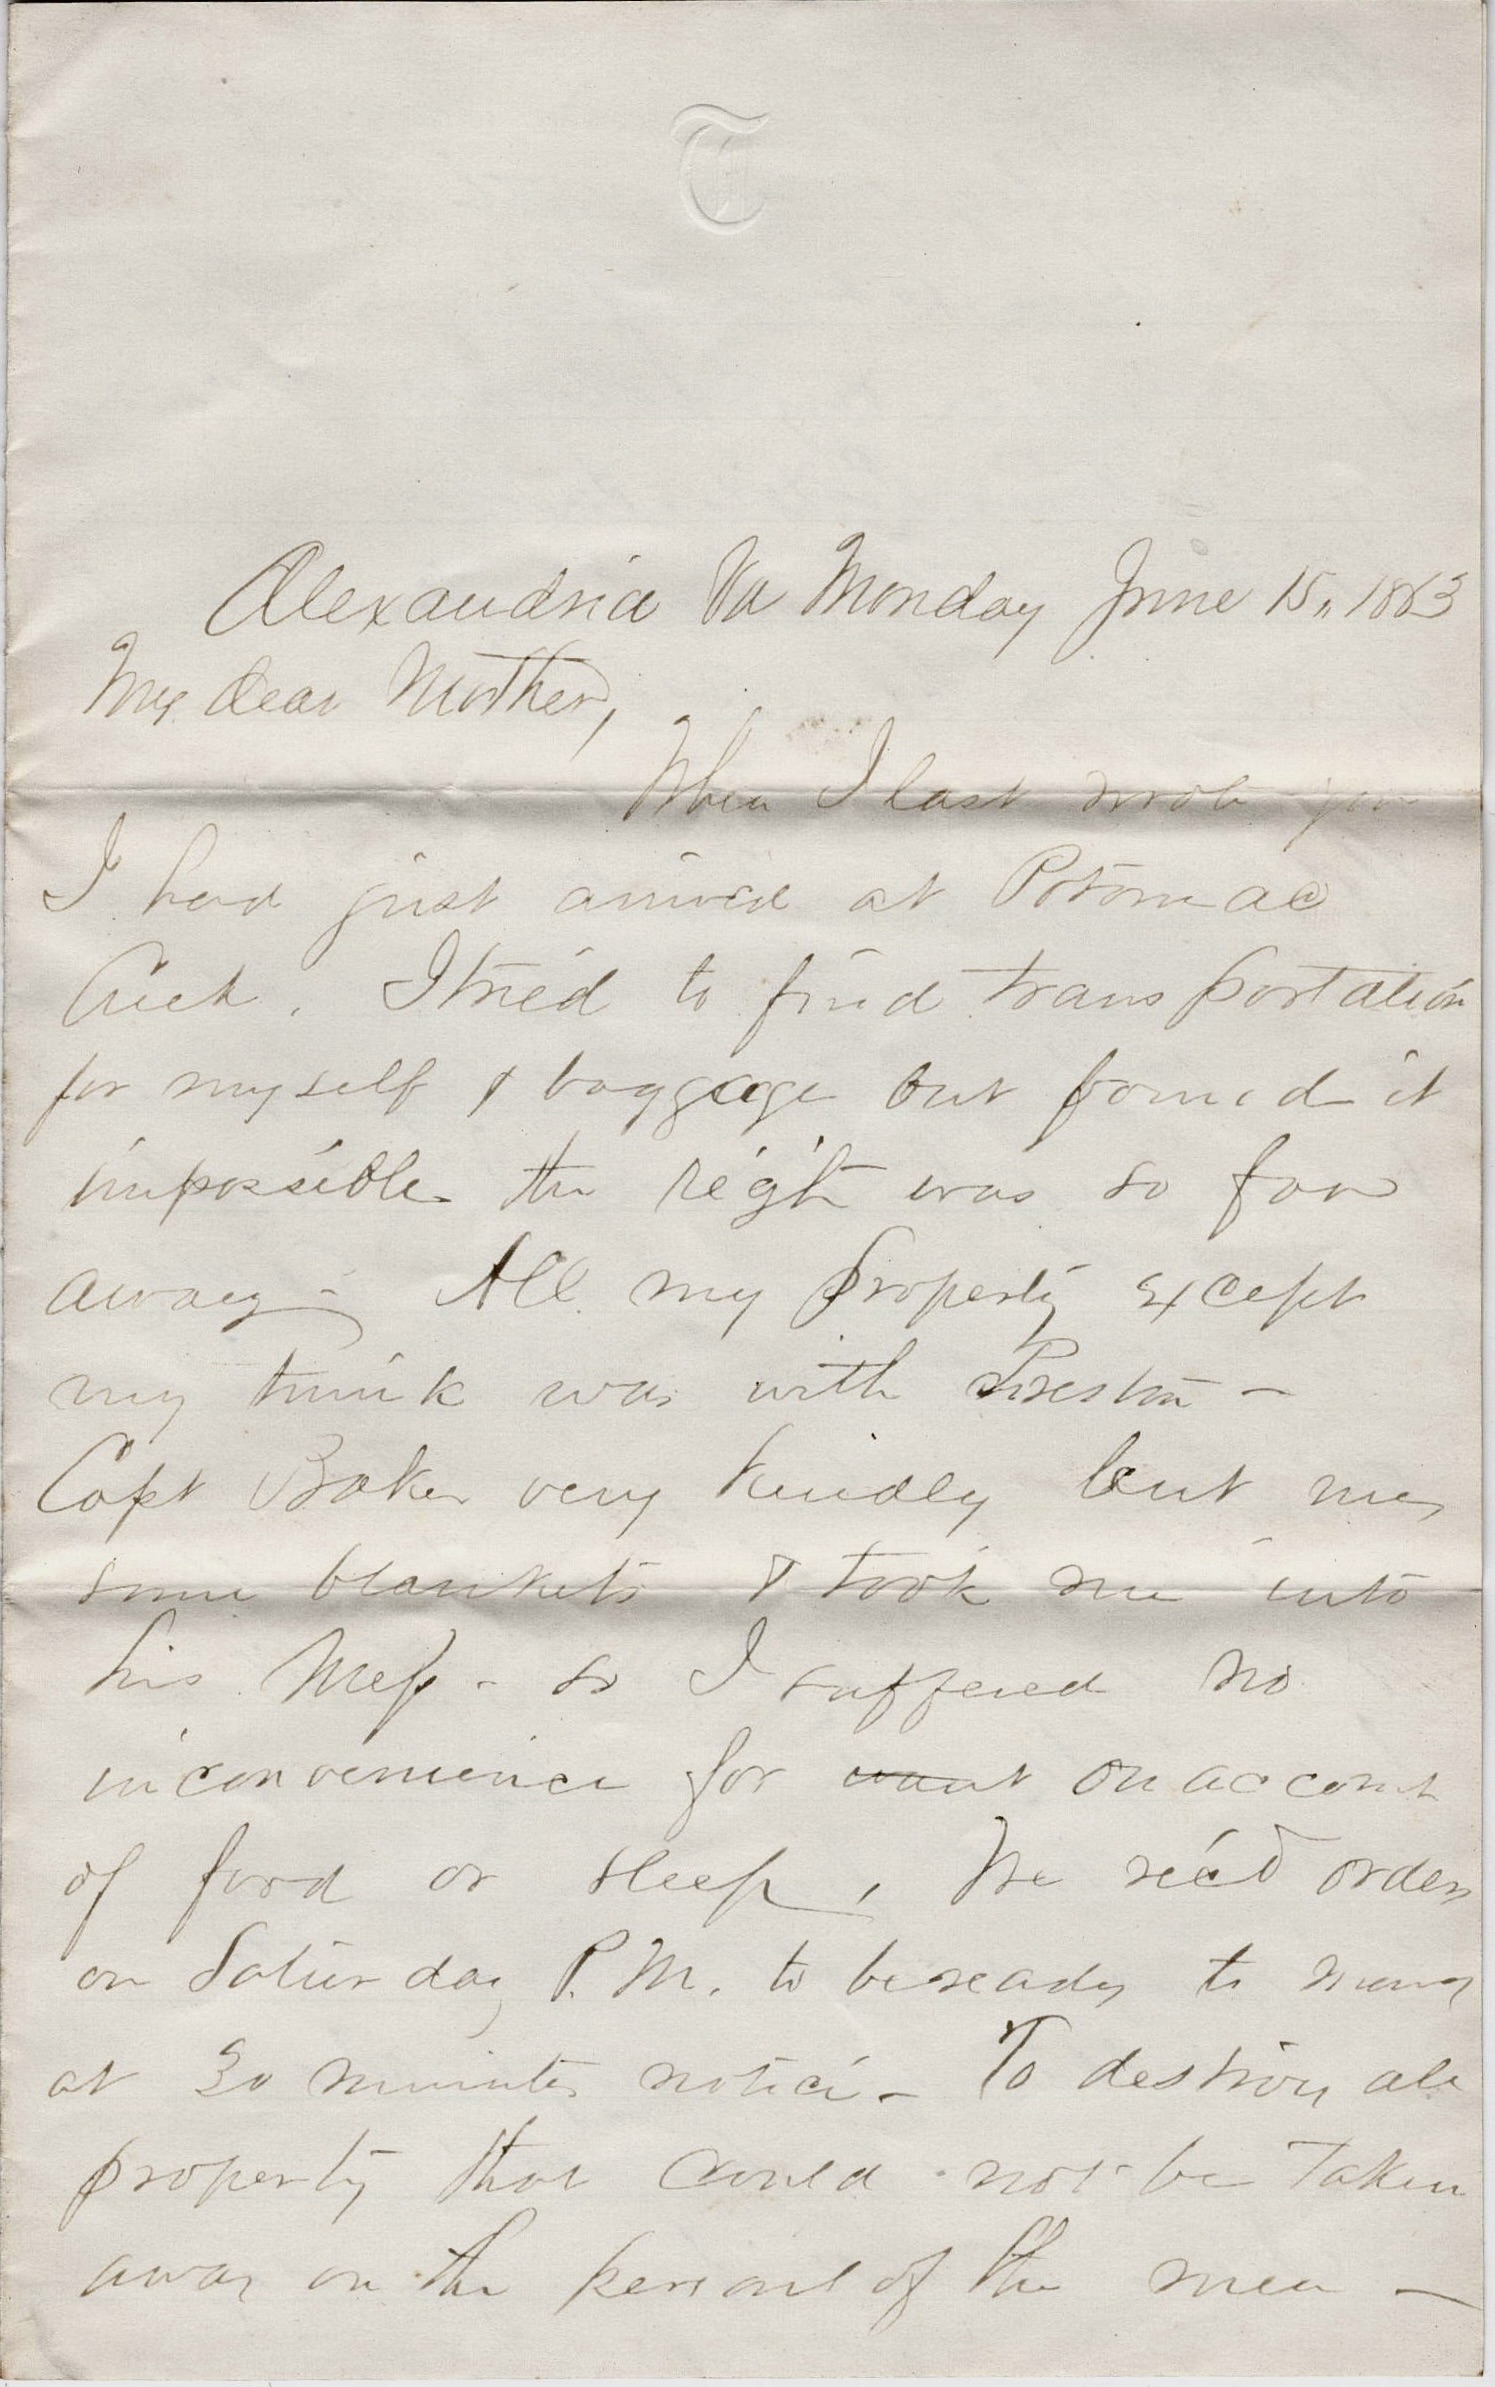 T
Alexandria Va Monday June 15,, 1863
My dear Mother,
When I last wrote you
I had just arrived at Potomac
Creek. I tried to find transportation
for myself & baggage but found it
impossible the regt was so far
away - All my property except
my trunk was with Preston -
Capt Baker very kindly lent me
some blankets & took me into
his Mess - so I suffered no
inconvenience for want on account
of food or sleep, We rec'd orders
on Saturday P.M. to be ready to move
at 30 minutes notice - To destroy all
property that could not be taken
away on the persons of the men -